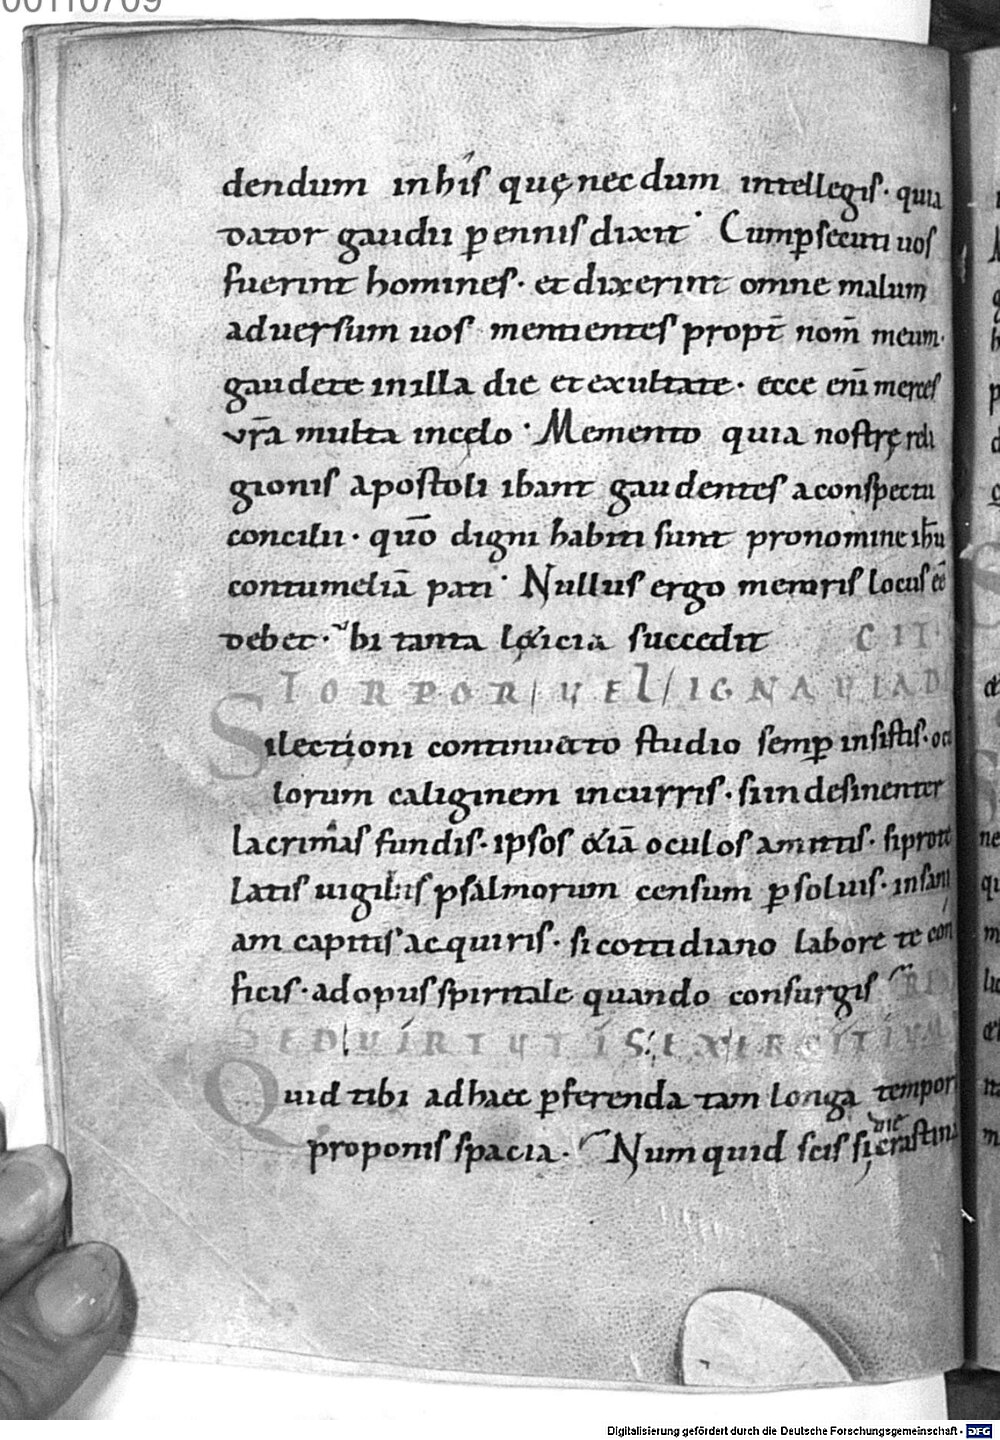 00110709
dendum in his quę nec dum intellegis· quia
dator gaudii p̄ennis dixit· Cum p̄secuti uos
fuerint homines· et dixerint omne malum
aduersum uos mentientes propt̄ nom̄ meum·
gaudete in illa die et exultate· ecce eni̅ merces
vr̄a multa in cęlo· Memento quia nostrę reli
gionis apostoli ibant gaudentes a conspectu
concilii· qūo digni habiti sunt pro nomine ih̅u
contumeliā pati· Nullus ergo meroris locus eē
debet· ubi tanta lęticia succedit CIT·
TORPOR/ VEL/ IGNAVIA D
Si lectioni continuato studio semp̄ insistis· ocu
lorum caliginem incurris· si indesinenter
lacrimas fundis· ipsos &iā oculos amittis· si prote
latis uigiliis psalmorum censum p̄soluis· insani
am capitis acquiris· si cottidiano labore te con
ficis· ad opus spiritale quando consurgis
SED VIRTUTIS EXERCITIUM
Quid tibi ad haec p̄ferenda tam longa tempor
proponis spacia· Numquid scis si crastina
die
Digitalisierung gefördert durch die Deutsche Forschungsgemeinschaft - DFG